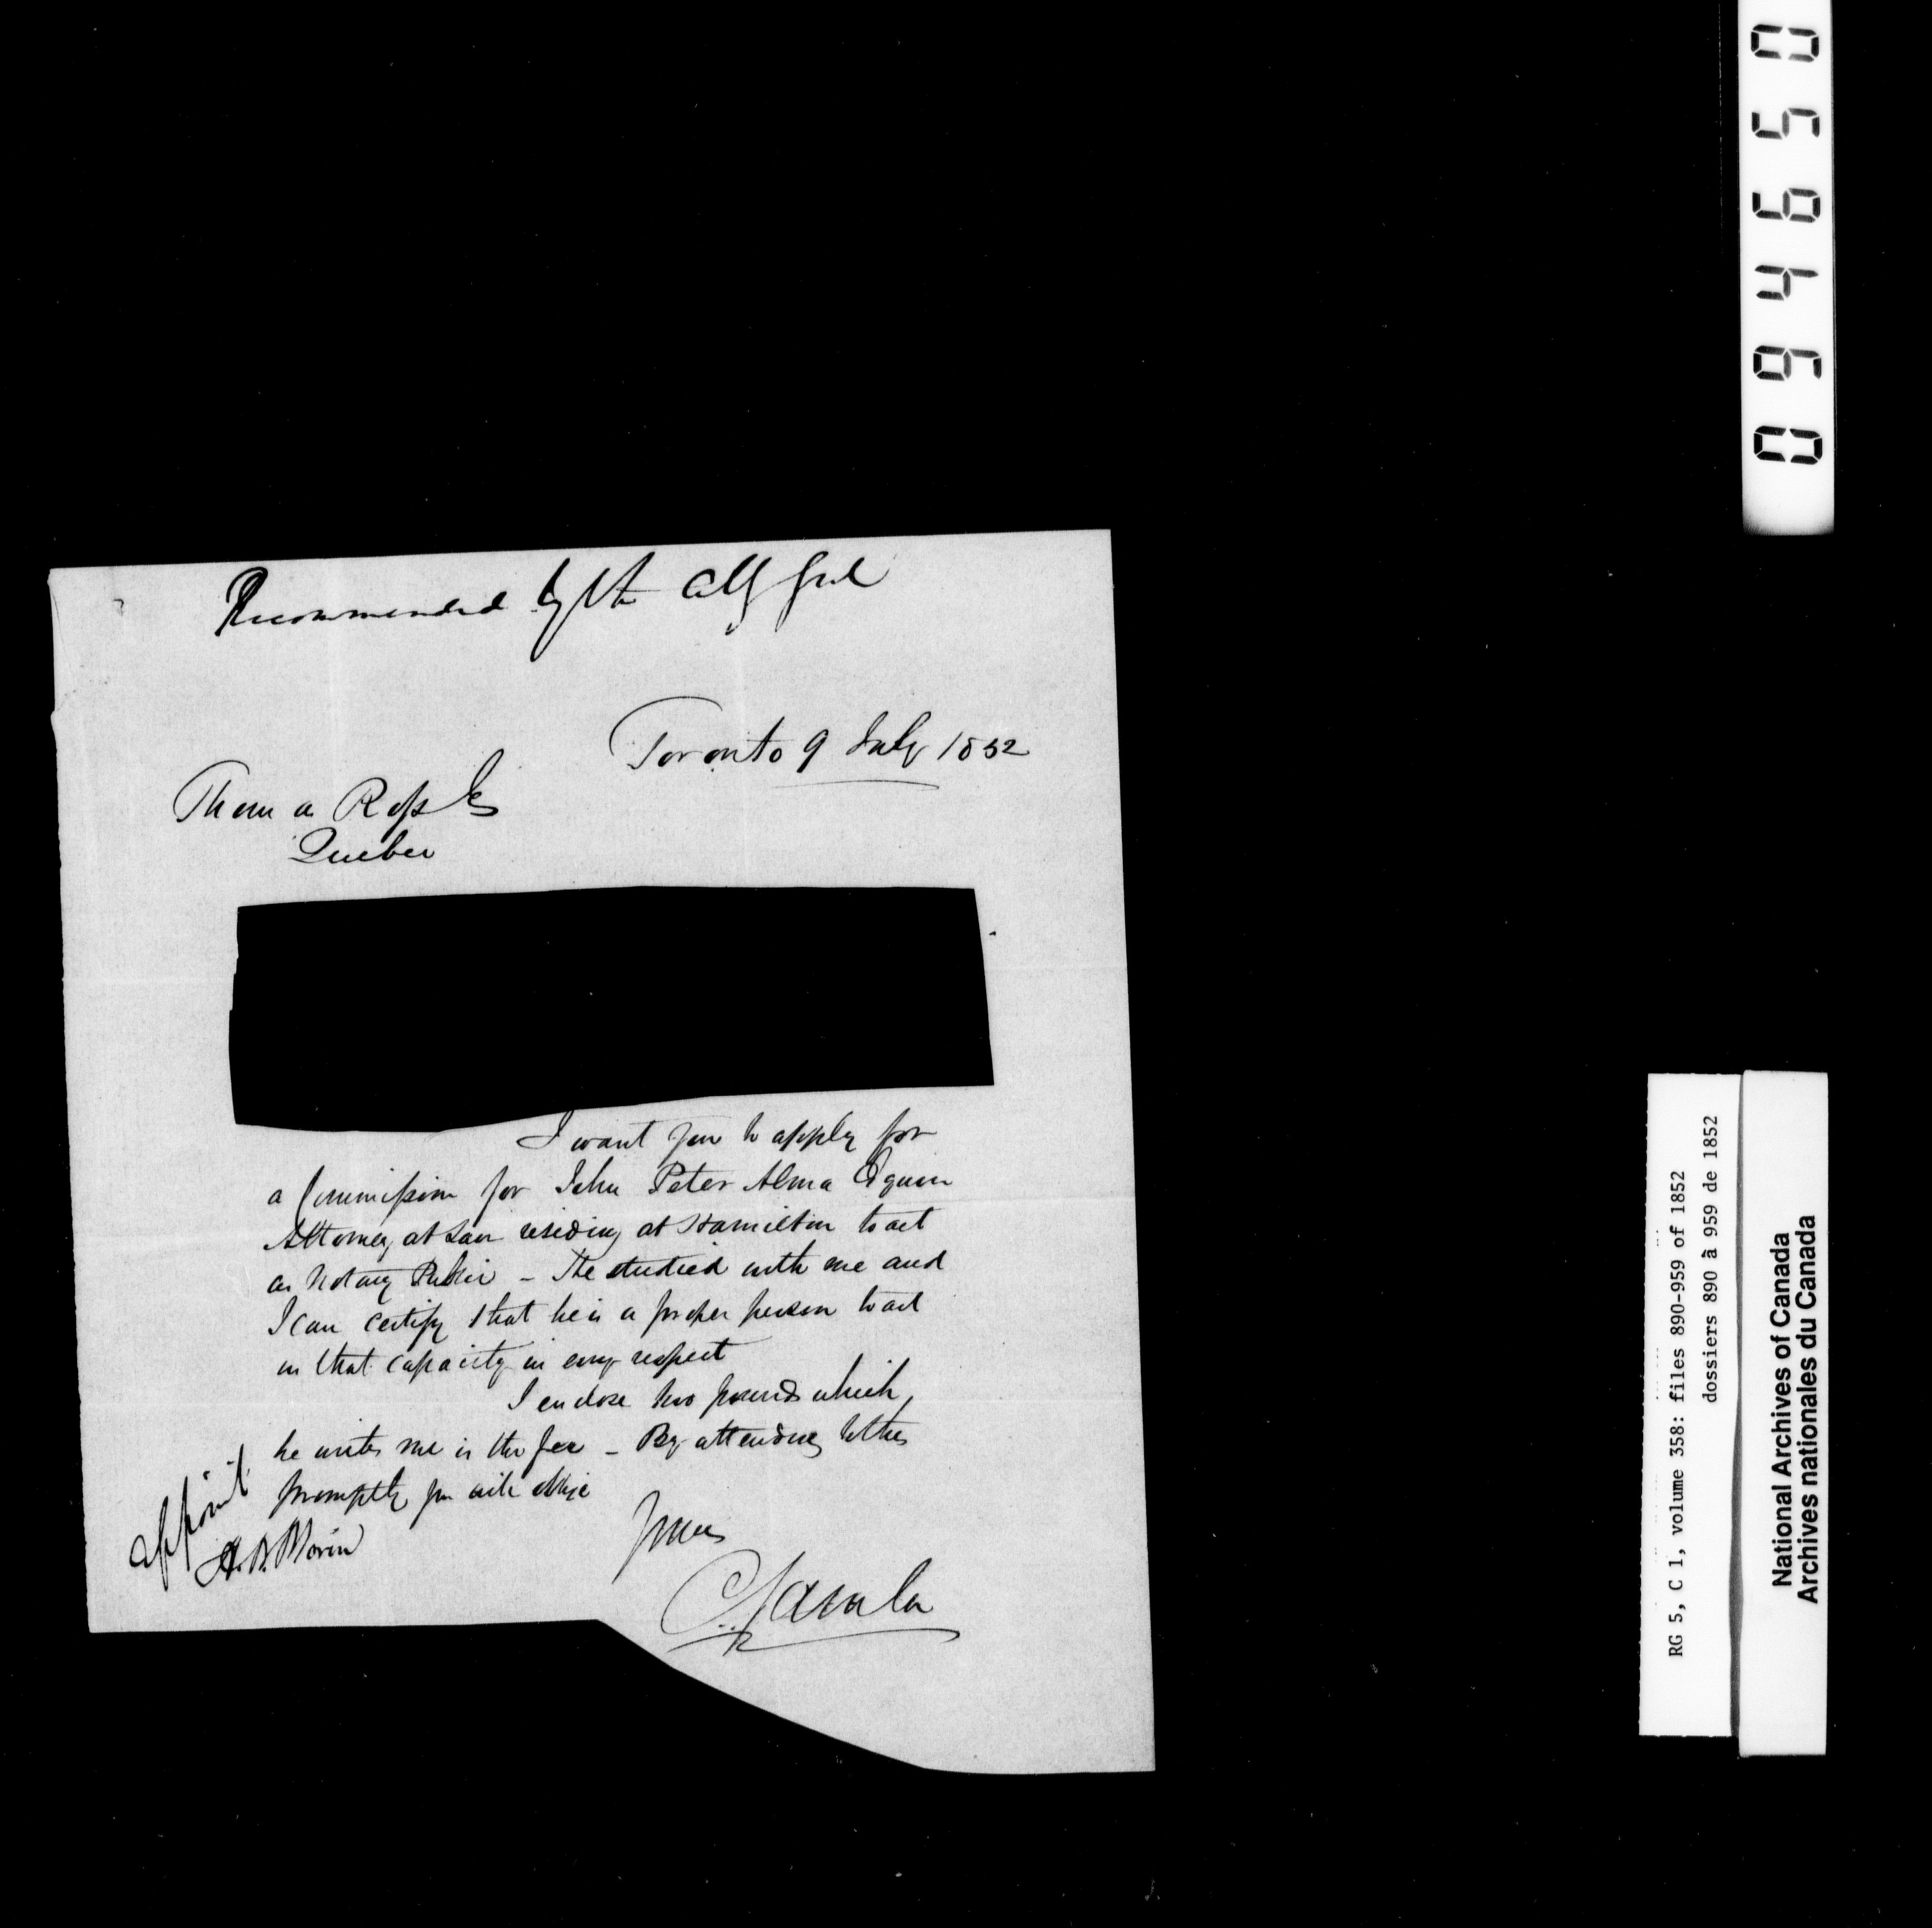 Recommended by the Atty Genl
Toronto 9 July 1852
Thomas Ross Es
Quebec
I want you to apply for
a Commission for John Peter Alma Esquire
Attorney at Law residing at Hamilton to act
as Notary Public – He studied with me and
I can certify that he is a proper person to act
in that capacity in every respect
I enclose two pounds which
he writes me is the fee – By attending to this
promptly you will oblige
Yours
appoint
A. N. Morin
094650
RG 5, C 1, volume 358: files 890-959 of 1852
dossiers 890 à 959 de 1852
National Archives of Canada
Archives nationales du Canada